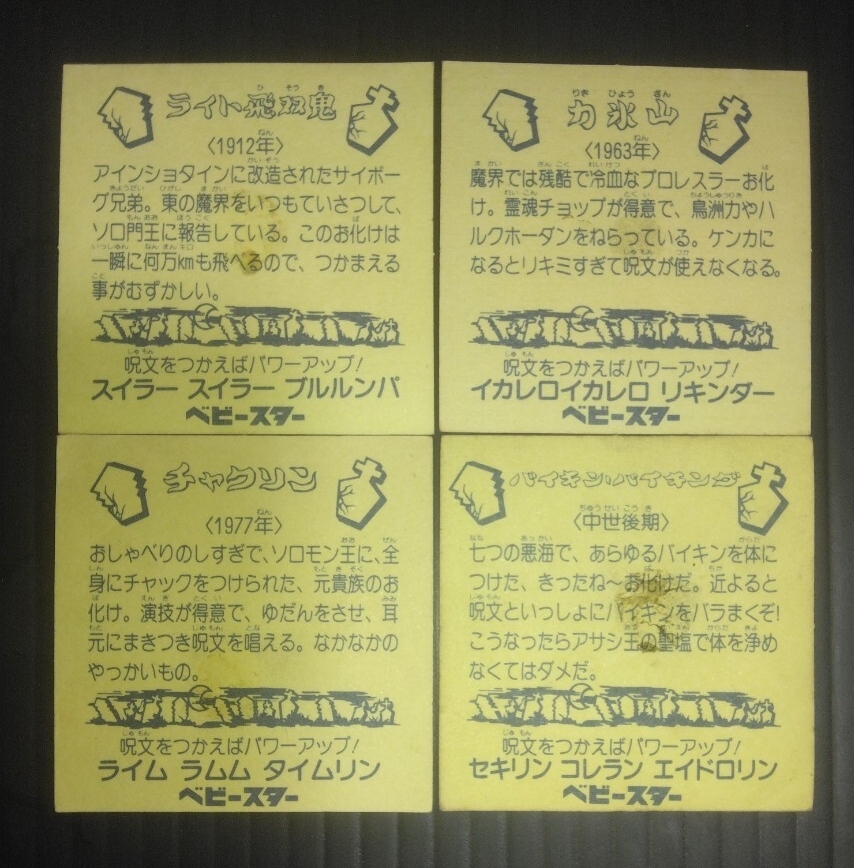 ライト飛双鬼
〈1912年〉
アインショタインに改造されたサイボー
グ兄弟。東の魔界をいつもていさつして、
ソロ門王に報告している。このお化けは
一瞬に何万kmも飛べるので、つかまえる
事がむずかしい。
呪文をつかえばパワーアップ!
スイラー スイラー ブルルンパ
ベビースター
力氷山
〈1963年〉
魔界では残酷で冷血なプロレスラーお化
け。霊魂チョップが得意で、鳥洲力やハ
ルクホーダンをねらっている。ケンカに
なるとリキミすぎて呪文が使えなくなる。
呪文をつかえばパワーアップ!
イカレロイカレロ リキンダー
ベビースター
チャクリン
〈1977年〉
おしゃべりのしすぎで、ソロモン王に、全
身にチャックをつけられた、元貴族のお
化け。演技が得意で、ゆだんをさせ、耳
元にまきつき呪文を唱える。なかなかの
やっかいもの。
呪文をつかえばパワーアップ!
ライム ラムム タイムリン
ベビースター
バイキンバイキング
〈中世後期〉
七つの悪海で、あらゆるバイキンを体に
つけた、きったね〜お化けだ。近よると
呪文といっしょにバイキンをバラまくぞ!
こうなったらアサシ王の聖塩で体を浄め
なくてはダメだ。
呪文をつかえばパワーアップ!
セキリン コレラン エイドロリン
ベビースター